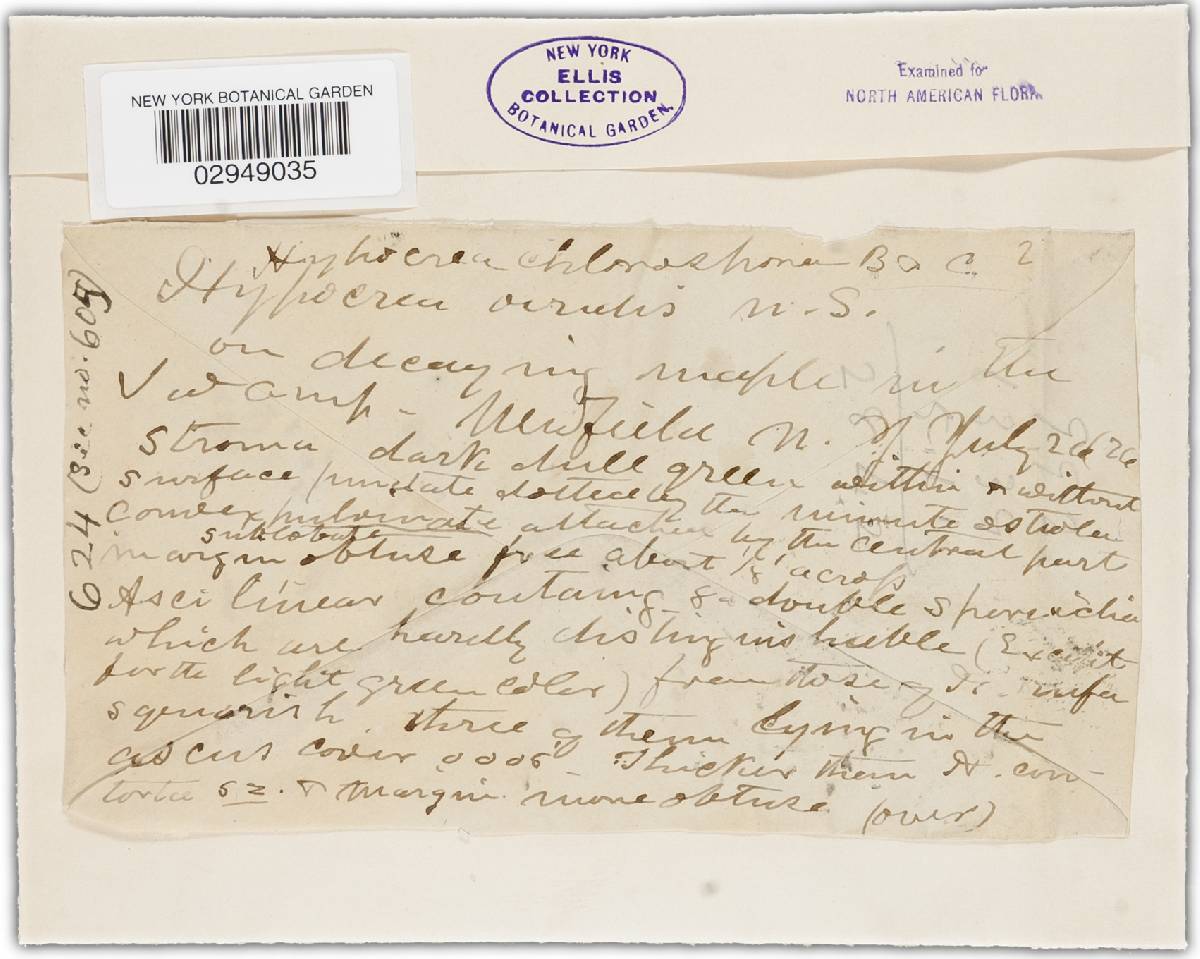 NEW YORK BOTANICAL GARDEN
02949035
NEW YORK
ELLIS
COLLECTION
BOTANICAL GARDEN.
Examined for
NORTH AMERICAN FLORA.
624 (See no. 605)
Hypocrea chlorospora B & C ?
Hypocrea viridis n. S.
on decaying maple in the
Swamp - Newfield N. J July
Stroma dark dull green within & without
surface dotted by the minute ostiola
Convex pulvinate attached by the central part
sublobate
margin obtuse free about 1/8" across
Asci linear containg 8- double sporidia
which are hardly distinguishable (Except
for the light green color) from those of H. rufa
squarish three of them lying in the
ascus cover .0006" Thicker than H. con-
torta Sz. & margin more obtuse (over)